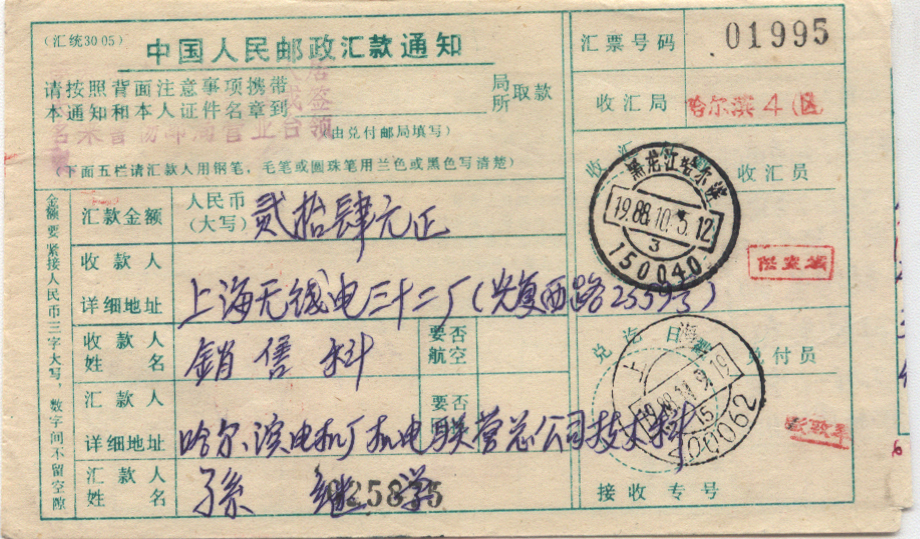 (汇统3005)
中国人民邮政汇款通知
汇票号码
01995
请按照背面注意事项携带
本通知和本人证件名章到
局
所
取款
(由兑付邮局填写)
收汇局
哈尔滨4(区)
(下面五栏请汇款人用钢笔，毛笔或圆珠笔用兰色或黑色写清楚)
金额要紧接人民币三字大写，数字间不留空隙
汇款金额
人民币
(大写)
贰拾肆元正
收汇
黑龙江哈尔滨
1988.10.5.12
3
150040
收汇员
收款人
详细地址
上海无线电三十二厂(光复西路255弓)
收款人
姓名
銷售科
要否
航空
兑讫日
上海
19
15
200062
兑付员
汇款人
详细地址
哈尔滨电机厂机电联营总公司技术科
要否
汇款人
姓名
孫继学
025835
接收专号